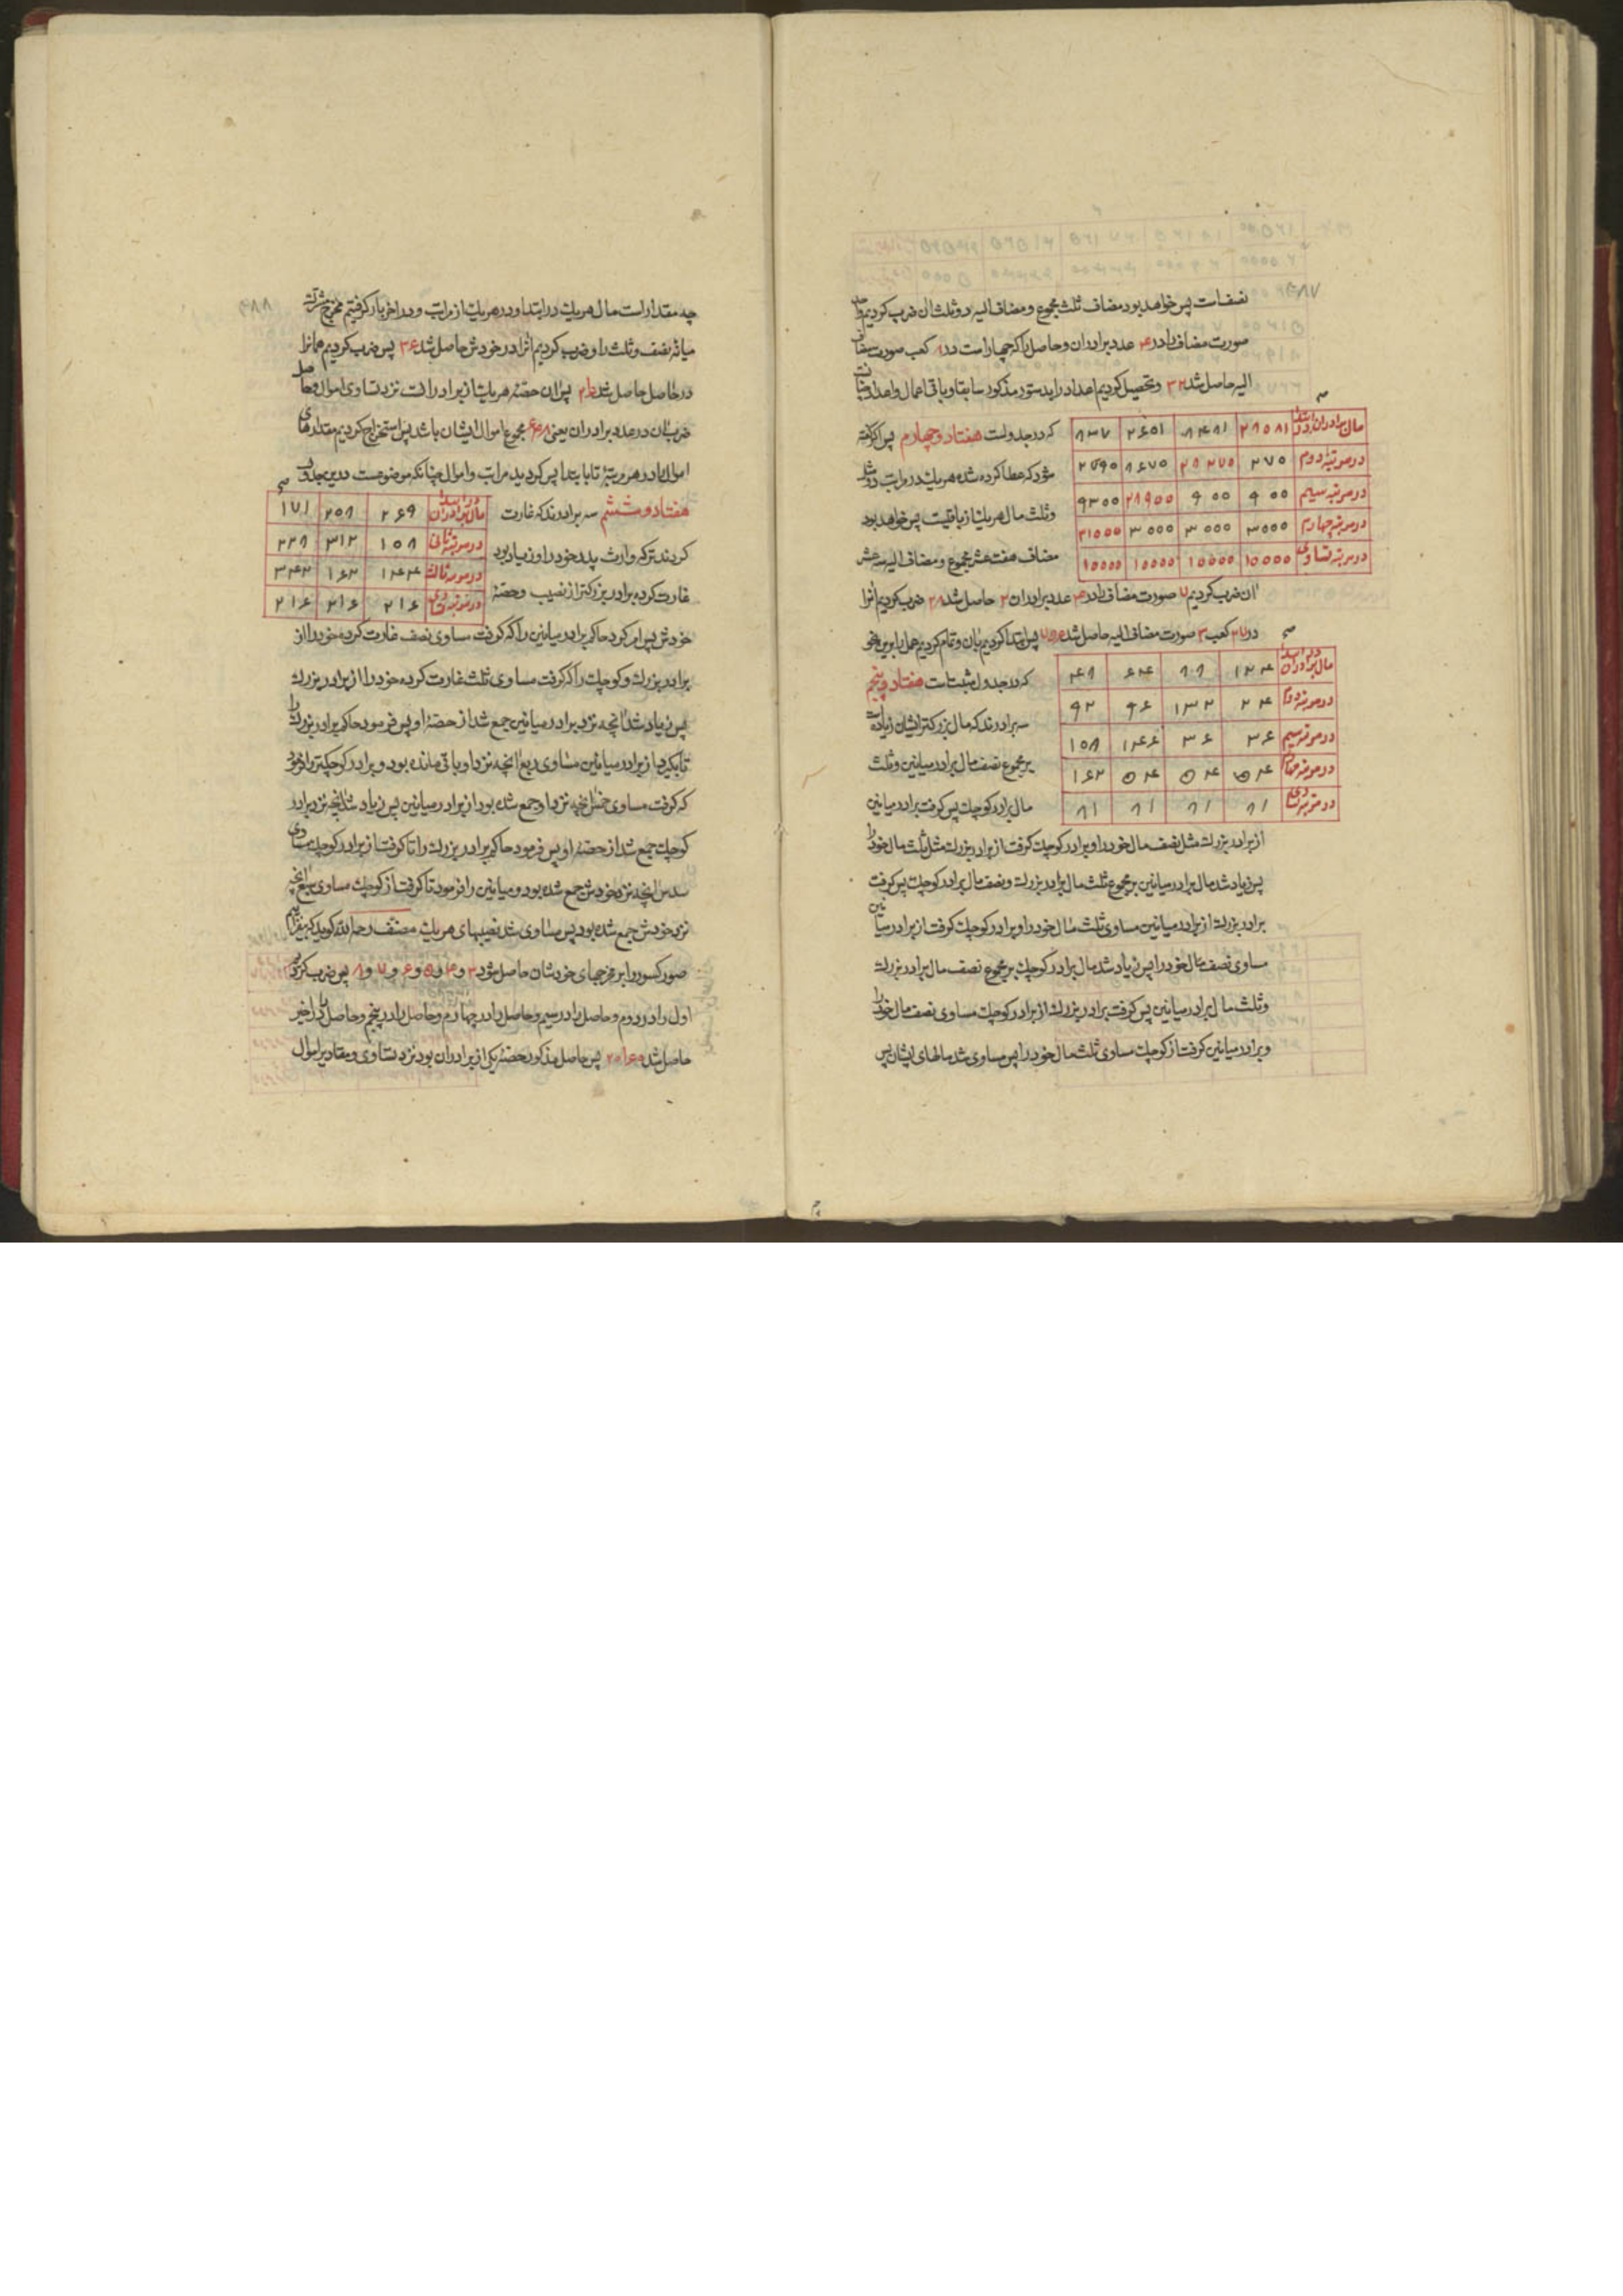 نصفات پس خواهد بود مضاف ثلث مجموع و مضاف الیه دو ثلث ان ضرب کردیم
صورت مضاف را در ۴ عدد برادران و حاصل را که چهار است در ۸ کعب صورت مضاف
الیه حاصل شد ۳۲ و تحصیل کردیم اعداد را بدستور مذکور سابقا و باقی اعمال و اعداد
مال برادران در ابتدا ۲۸۰۵۸۱ ۸۴۸۱ ۲۶۵۱ ۸۳۷
در مرتبه دوم ۲۷۰ ۲۸۲۷۰ ۸۶۷۰ ۲۷۹۰
در مرتبه سیم ۹۰۰ ۹۰۰ ۲۸۹۰۰ ۹۳۰۰
در مرتبه چهارم ۳۰۰۰ ۳۰۰۰ ۳۰۰۰ ۳۱۰۰۰
در مرتبه تساوی ۱۰۰۰۰ ۱۰۰۰۰ ۱۰۰۰۰ ۱۰۰۰۰
که در جدولست هفتاد و چهارم پس اگر گفته
شود که عطا کرده شده هر یک در مراتب دو ثلث
و ثلث مال هر یک از باقیست پس خواهد بود
مضاف هفت عشر مجموع و مضاف الیه سه عشر
ان ضرب کردیم ۷ صورت مضاف را در ۴ عدد برادران ۲ حاصل شد ۲۸ ضرب کردیم انرا
در ۲۷ کعب ۳ صورت مضاف الیه حاصل شد ۷۵۶ پس ابتدا کردیم بان و تمام کردیم عمل را برین نحو
مال برادران در ابتدا ۱۲۴ ۸۸ ۶۴ ۴۸
در مرتبه دوم ۲۴ ۱۳۲ ۹۶ ۹۲
در مرتبه سیم ۳۶ ۳۶ ۱۴۴ ۱۰۸
در مرتبه چهارم ۵۴ ۵۴ ۵۴ ۱۶۲
در مرتبه تساوی ۸۱ ۸۱ ۸۱ ۸۱
که در جدول مثبت است هفتاد و پنجم
سه برادرند که مال بزرکتر ایشان زیاده است
بر مجموع نصف مال برادر میانین و ثلث
مال برادر کوچک پس کرفت برادر میانین
از برادر بزرک مثل نصف مال خود را و برادر کوچک کرفت از برادر بزرک مثل ثلث مال خود را
پس زیاد شد مال برادر میانین بر مجموع ثلث مال برادر بزرک و نصف مال برادر کوچک پس کرفت
برادر بزرک از برادر میانین مساوی ثلث مال خود را و برادر کوچک کرفت از برادر میانین
مساوی نصف مال خود را پس زیاد شد مال برادر کوچک بر مجموع نصف مال برادر بزرک
و ثلث مال برادر میانین پس کرفت برادر بزرک از برادر کوچک مساوی نصف مال خود را
و برادر میانین کرفت از کوچک مساوی ثلث مال خود را پس مساوی شد مالهای ایشان پس
چه مقدار است مال هر یک در ابتدا و در هر یک از مراتب و در اخر بار کرفتیم مخرج مشترک
میانه نصف و ثلث را و ضرب کردیم انرا در خودش حاصل شد ۳۶ پس ضرب کردیم همانرا
در حاصل حاصل شد ۲۱۶ پس ان حصه هر یک از برادرانست نزد تساوی اموال و حاصل
ضرب ان در عدد برادران یعنی ۶۴۸ مجموع اموال ایشان باشد پس استخراج کردیم مقدارهای
اموال را در هر مرتبه تا بابتدا پس کردید مراتب و اموال چنانکه موضوعست در این جدول
مال برادران در ابتدا ۲۶۹ ۲۰۸ ۱۷۱
در مرتبه ثانی ۱۰۸ ۳۱۲ ۲۲۸
در مرتبه ثالث ۱۴۴ ۱۶۲ ۳۴۲
در مرتبه تساوی ۲۱۶ ۲۱۶ ۲۱۶
هفتاد و ششم سه برادرند که غارت
کردند ترکه وارث پدر خود را و زیاد بود
غارت کرده برادر بزرکتر از نصیب و حصه
خودش پس امر کرد حاکم برادر میانین را که کرفت مساوی نصف غارت کرده خود را از
برادر بزرک و کوچک را که کرفت مساوی ثلث غارت کرده خود را از برادر بزرک
پس زیاد شد انچه نزد برادر میانین جمع شد از حصه او پس فرمود حاکم برادر بزرک را
تا بکیرد از برادر میانین مساوی ربع انچه نزد او باقی مانده بود و برادر کوچکتر را فرمود
که کرفت مساوی خمس انچه نزد او جمع شده بود از برادر میانین پس زیاد شد انچه نزد برادر
کوچک جمع شد از حصه او پس فرمود حاکم برادر بزرک را تا کرفت از برادر کوچک مساوی
سدس انچه نزد خودش جمع شده بود و میانین را فرمود تا کرفت از کوچک مساوی سبع انچه
نزد خودش جمع شده بود پس مساوی شد نصیبهای هر یک مصنف رحمه الله کوید که بیفزائیم
صور کسور را بر مخرجهای خودشان حاصل شود ۳ و ۴ و ۵ و ۶ و ۷ و ۸ پس ضرب کردیم
اول را در دوم و حاصل را در سیم و حاصل را در چهارم و حاصل را در پنجم و حاصل را در اخیر
حاصل شد ۲۰۱۶۰ پس حاصل مذکور حصه یکی از برادران بود نزد تساوی و مقادیر اموال